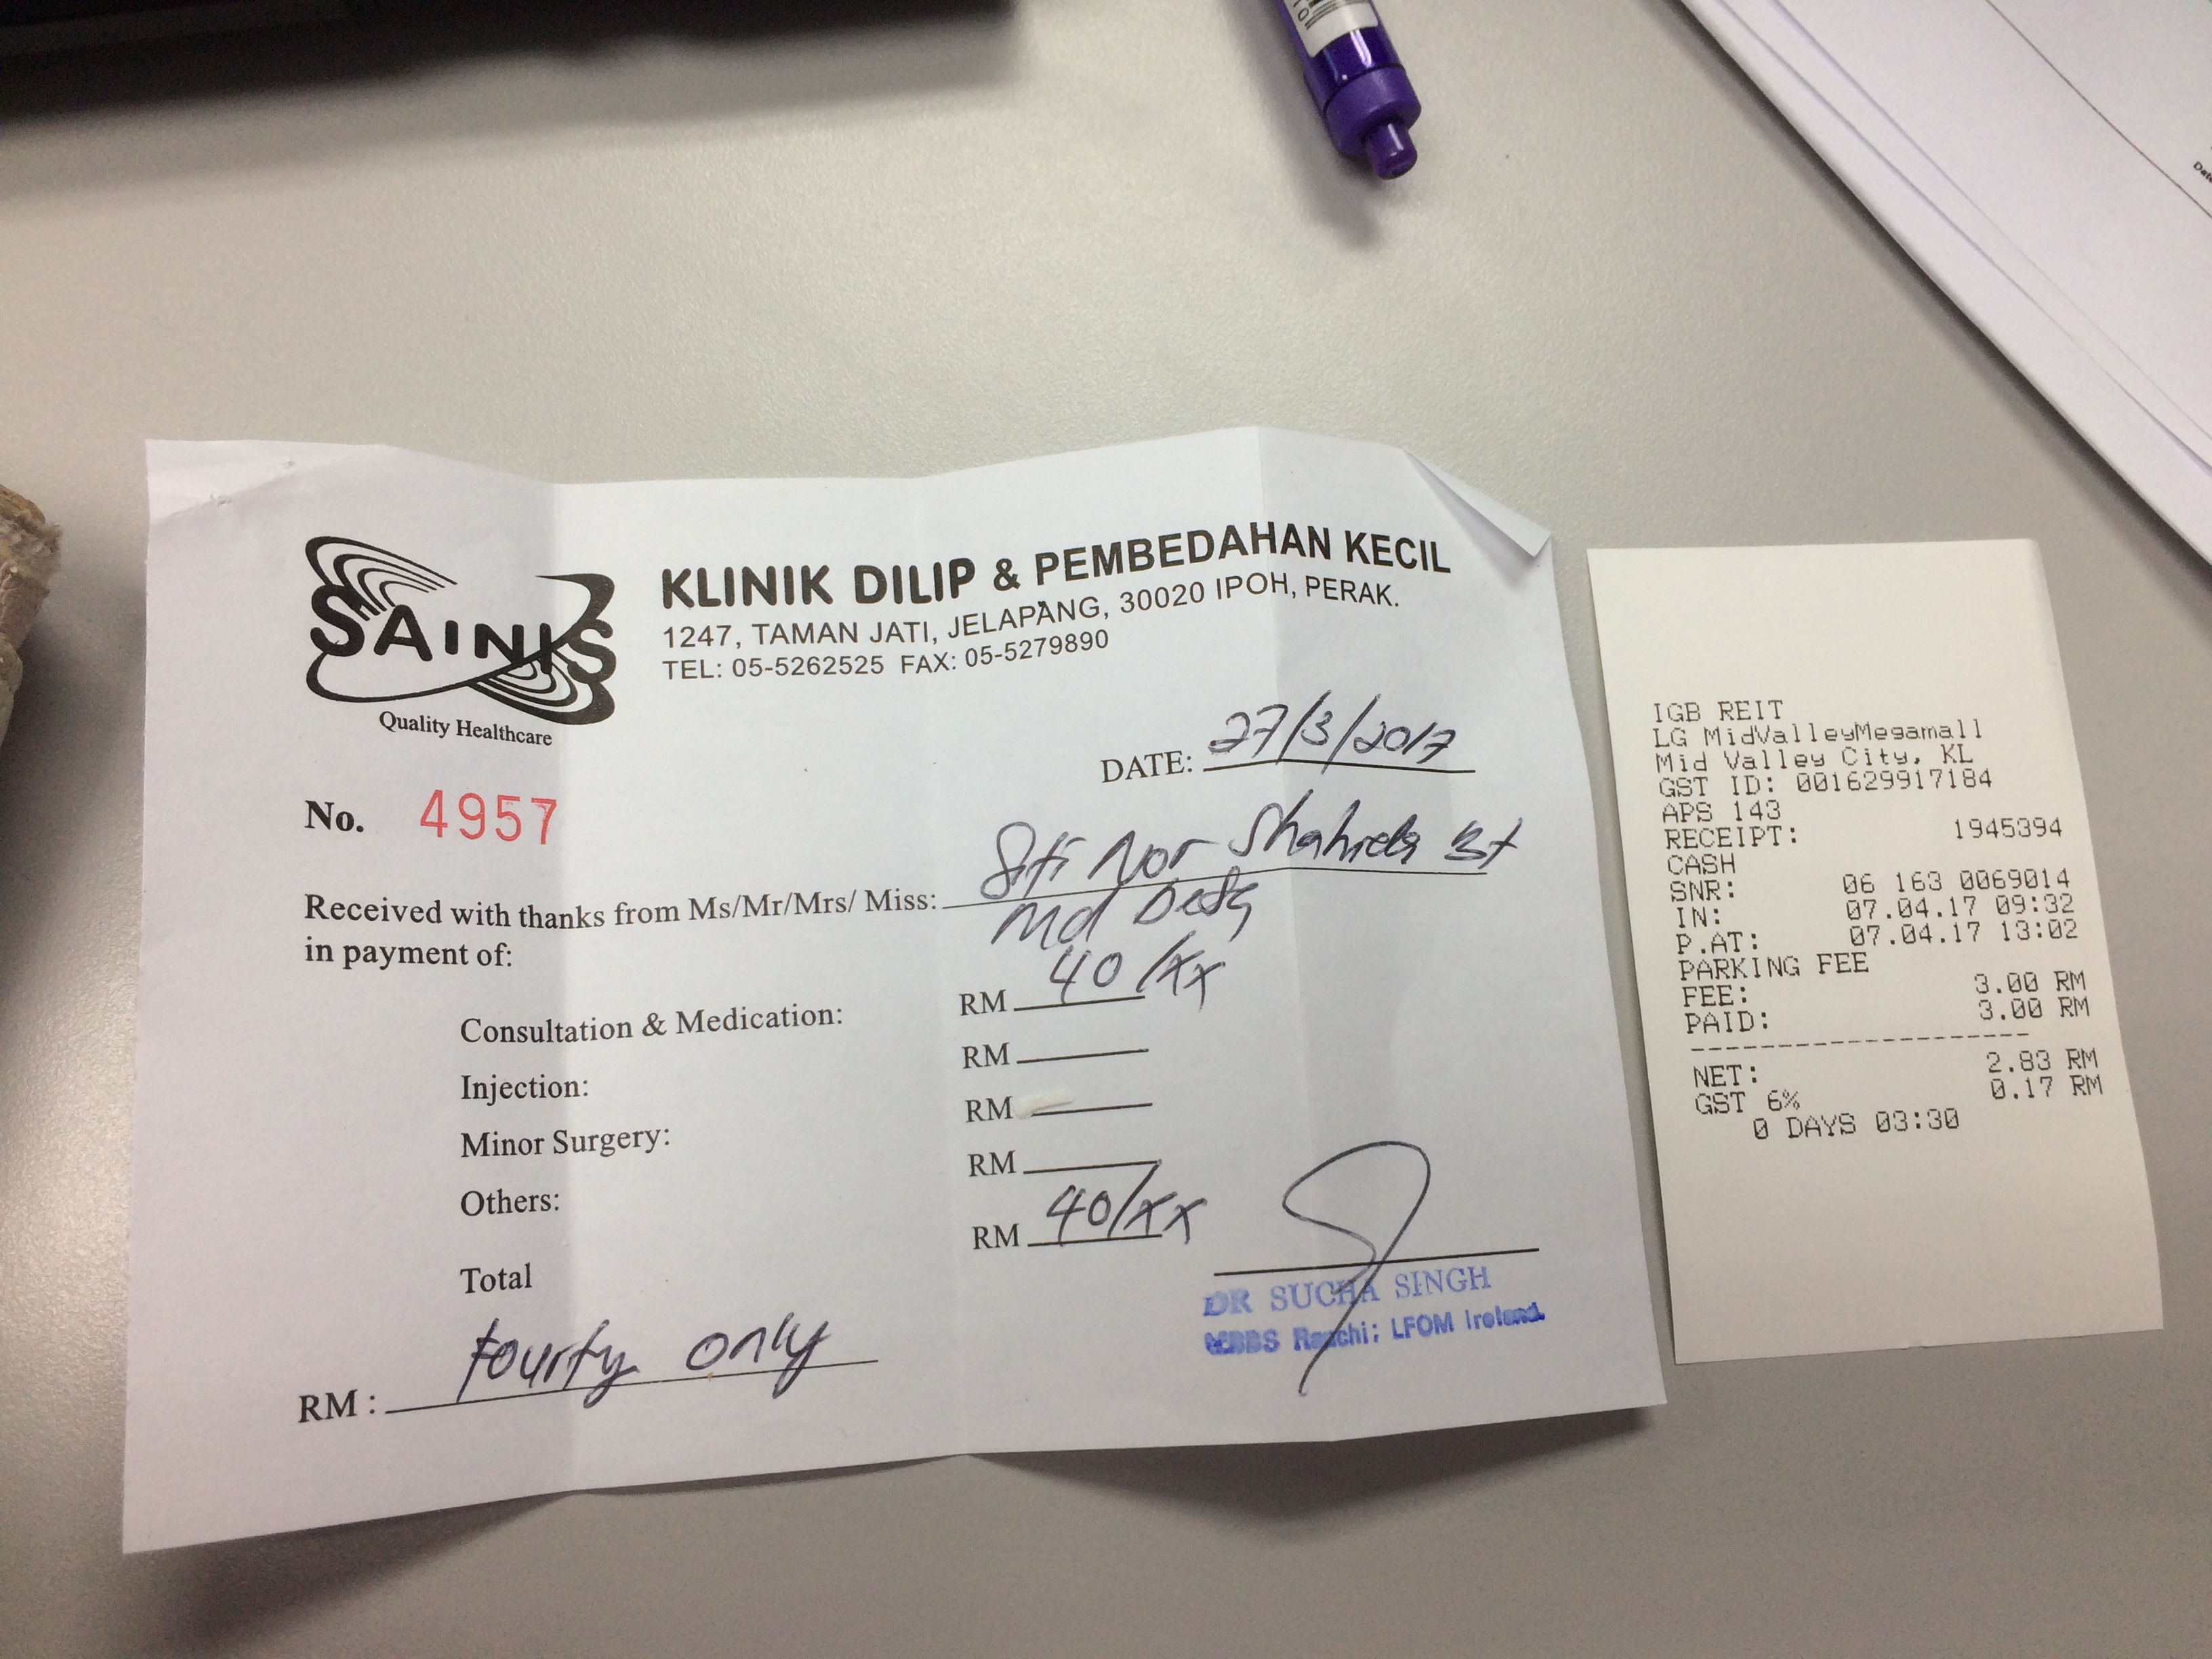 SAINKS
Quality Healthcare
KLINIK DILIP & PEMBEDAHAN KECIL
1247, TAMAN JATI, JELAPANG, 30020 IPOH, PERAK.
TEL: 05-5262525 FAX: 05-5279890
No. 4957
DATE: 27/3/2017
Received with thanks from Ms/Mr/Mrs/ Miss: Siti Nor Shahreda Bt
in payment of: Md
Consultation & Medication: RM 40/xx
Injection: RM
Minor Surgery: RM
Others: RM
Total RM 40/xx
RM : fourty only
DR SUCHA SINGH
MBBS Ranchi: LFOM Ireland.
IGB REIT
LG MidValleyMegamall
Mid Valley City, KL
GST ID: 001629917184
APS 143
RECEIPT: 1945394
CASH
SNR: 06 163 0069014
IN: 07.04.17 09:32
P.AT: 07.04.17 13:02
PARKING FEE
FEE: 3.00 RM
PAID: 3.00 RM
--------------------
NET: 2.83 RM
GST 6% 0.17 RM
0 DAYS 03:30